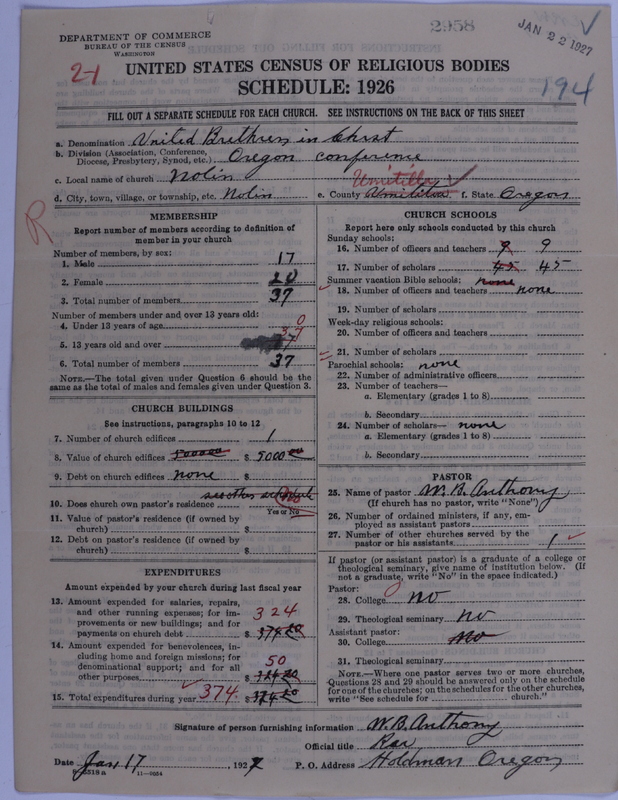 2958
JAN 22 1927
DEPARTMENT OF COMMERCE
BUREAU OF THE CENSUS
WASHINGTON
2-1
UNITED STATES CENSUS OF RELIGIOUS BODIES
SCHEDULE: 1926
194
FILL OUT A SEPARATE SCHEDULE FOR EACH CHURCH. SEE INSTRUCTIONS ON THE BACK OF THIS SHEET
a. Denomination United Brethren in Christ
b. Division (Association, Conference, Diocese, Presbytery, Synod, etc.) Oregon conference
c. Local name of church Nolin
d. City, town, village, or township, etc. Nolin e. County Umatilla f. State Oregon
R
MEMBERSHIP
Report number of members according to definition of
member in your church
Number of members, by sex:
1. Male 17
2. Female 20
3. Total number of members 37
Number of members under and over 13 years old:
4. Under 13 years of age 0
5. 13 years old and over 37
6. Total number of members 37
NOTE.—The total given under Question 6 should be the
same as the total of males and females given under Question 3.
CHURCH BUILDINGS
See instructions, paragraphs 10 to 12
7. Number of church edifices 1
8. Value of church edifices $ 5000 00
9. Debt on church edifices none $
see other schedule
10. Does church own pastor's residence No
Yes or No
11. Value of pastor's residence (if owned by
church) $
12. Debt on pastor's residence (if owned by
church) $
EXPENDITURES
Amount expended by your church during last fiscal year
13. Amount expended for salaries, repairs,
and other running expenses; for im-
provements or new buildings; and for
payments on church debt $ 324
14. Amount expended for benevolences, in-
cluding home and foreign missions; for
denominational support; and for all
other purposes $ 50
15. Total expenditures during year 374 $
CHURCH SCHOOLS
Report here only schools conducted by this church
Sunday schools:
16. Number of officers and teachers 9 9
17. Number of scholars 45 45
Summer vacation Bible schools: none
18. Number of officers and teachers none
19. Number of scholars
Week-day religious schools:
20. Number of officers and teachers
21. Number of scholars
Parochial schools: none
22. Number of administrative officers
23. Number of teachers—
a. Elementary (grades 1 to 8)
b. Secondary
24. Number of scholars— none
a. Elementary (grades 1 to 8)
b. Secondary
PASTOR
25. Name of pastor W. B. Anthony
(If church has no pastor, write "None")
26. Number of ordained ministers, if any, em-
ployed as assistant pastors
27. Number of other churches served by the
pastor or his assistants 1
If pastor (or assistant pastor) is a graduate of a college or
theological seminary, give name of institution below. (If
not a graduate, write "No" in the space indicated.)
Pastor:
28. College No
29. Theological seminary No
Assistant pastor:
30. College No
31. Theological seminary
NOTE.—Where one pastor serves two or more churches,
Questions 28 and 29 should be answered only on the schedule
for one of the churches; on the schedules for the other churches,
write "See schedule for church."
Signature of person furnishing information W. B. Anthony
Official title
Date Jan 17, 1927 P. O. Address Holdman Oregon
11—9654